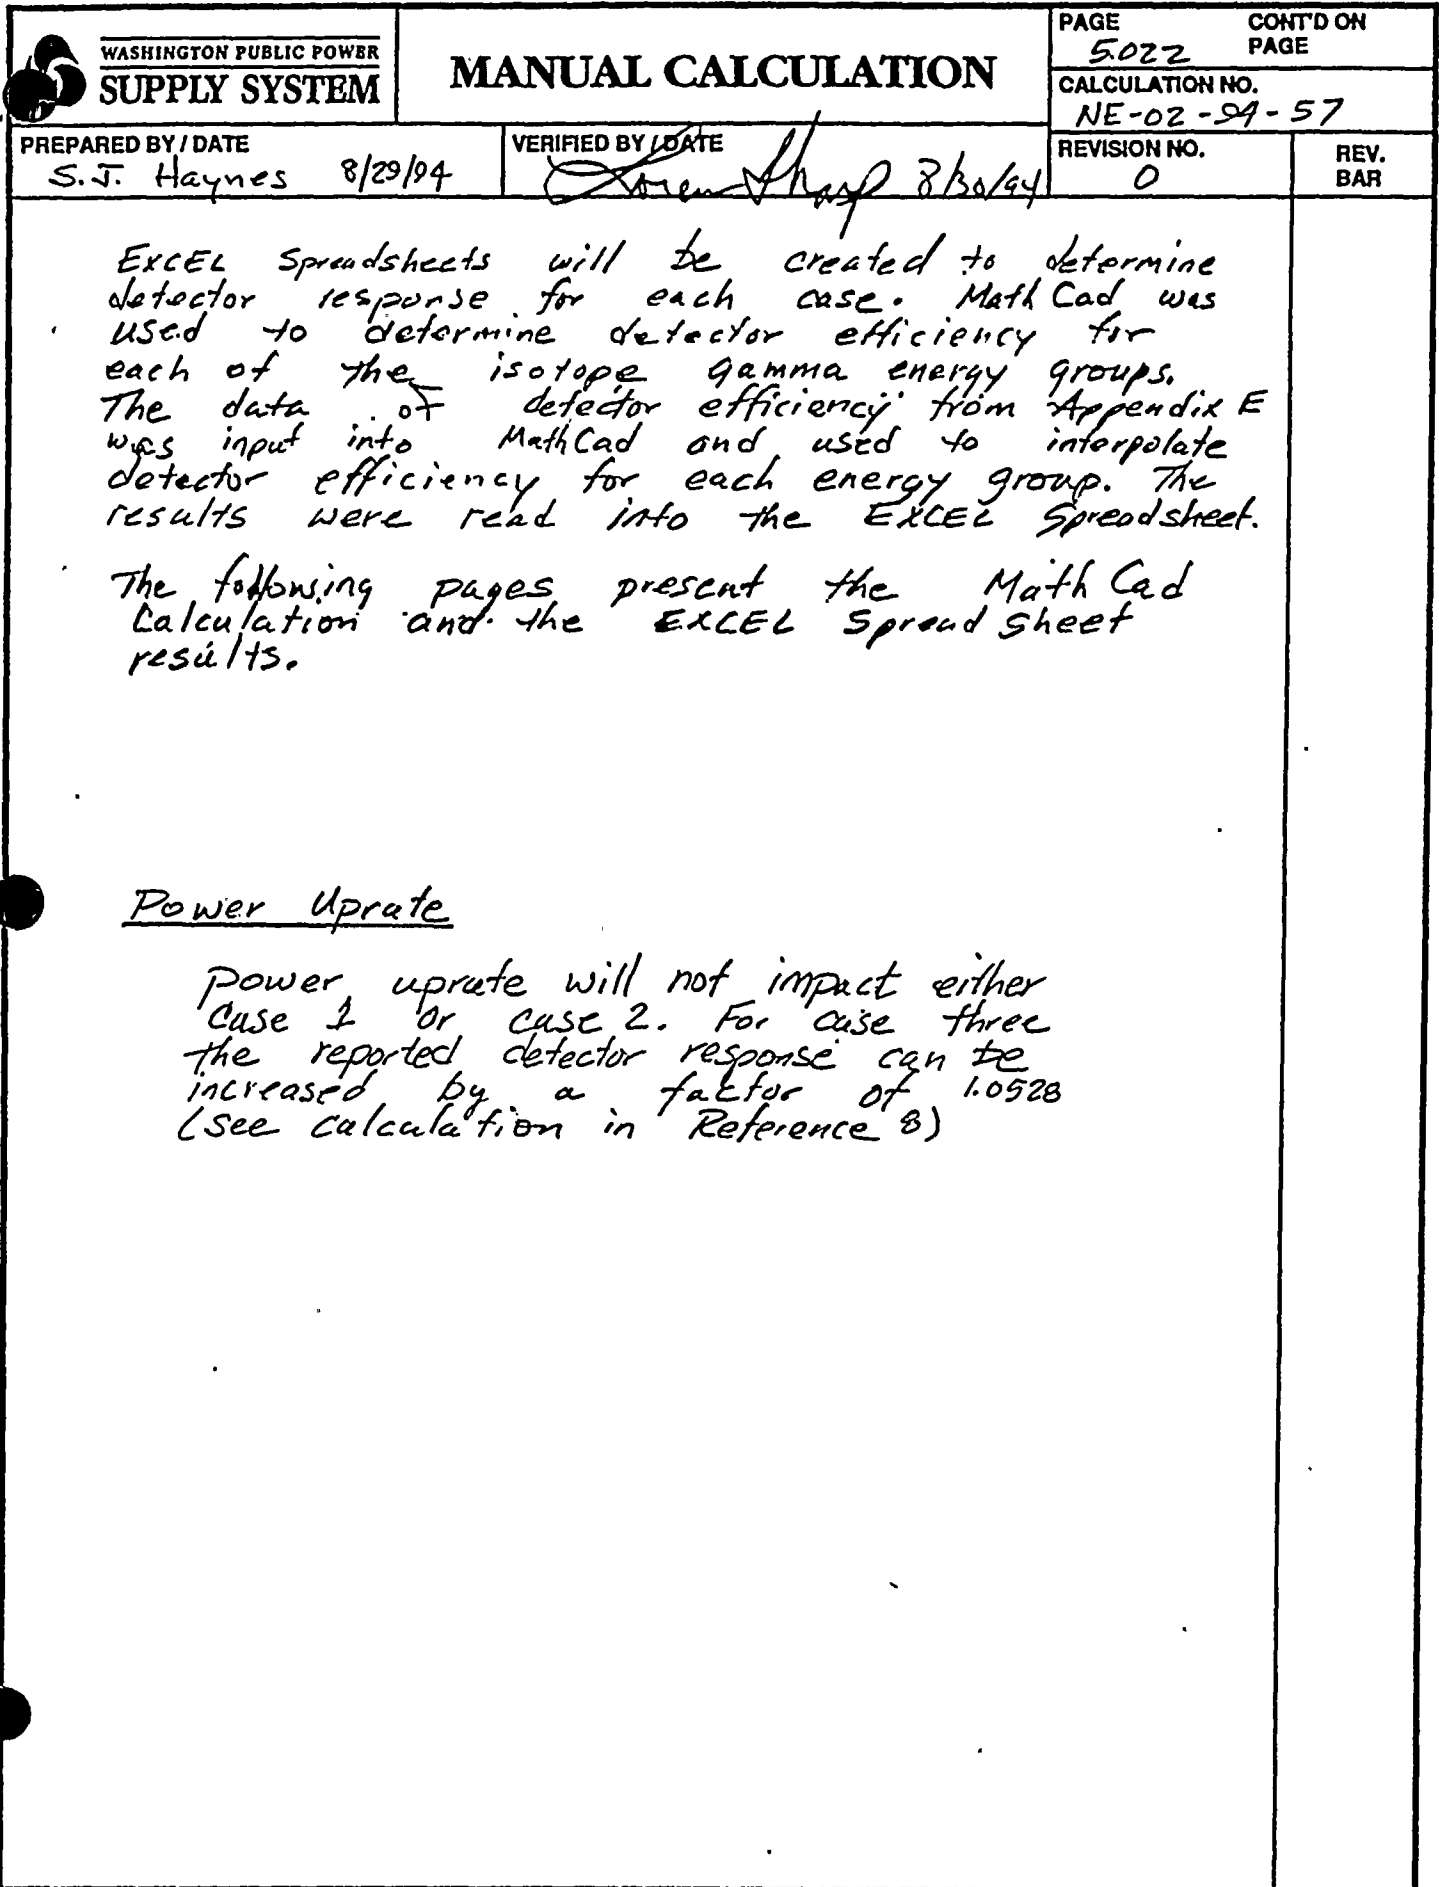 WASHINGTON PUBLIC POWER
SUPPLY SYSTEM
MANUAL CALCULATION
PAGE
5.022
CONT'D ON
PAGE
CALCULATION NO.
NE-02-94-57
PREPARED BY / DATE
S.J. Haynes 8/29/94
VERIFIED BY / DATE
Loren Sharp 8/30/94
REVISION NO.
0
REV.
BAR
EXCEL Spreadsheets will be created to determine
detector response for each case. MathCad was
used to determine detector efficiency for
each of the isotope gamma energy groups.
The data of detector efficiency from Appendix E
was input into MathCad and used to interpolate
detector efficiency for each energy group. The
results were read into the EXCEL Spreadsheet.
The following pages present the MathCad
Calculation and the EXCEL Spreadsheet
results.
Power Uprate
Power uprate will not impact either
Case 1 or case 2. For case three
the reported detector response can be
increased by a factor of 1.0528
(see calculation in Reference 8)